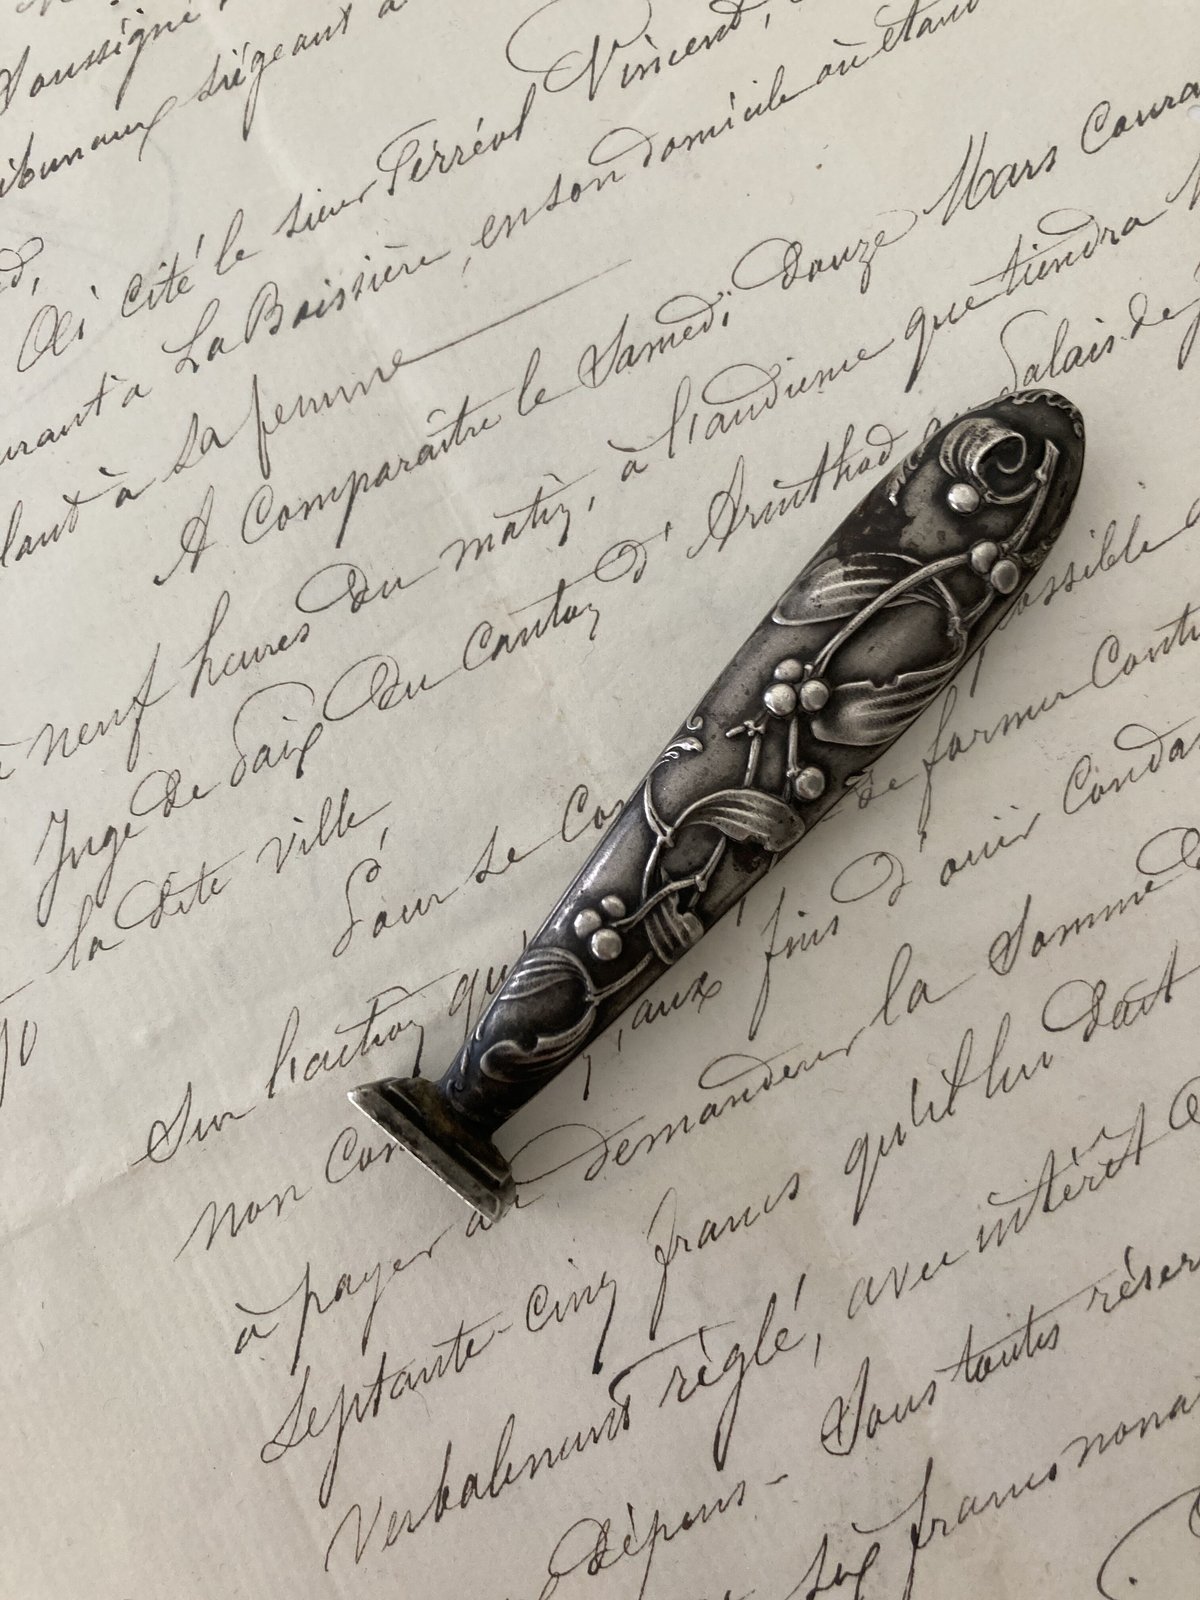 Soussigné
tribunaux siégeant à
Ai cité le sieur Ferréol Vincent,
à La Boissière, en son domicile où étant
à sa femme
A Comparaître le Samedi douze Mars Coura
à neuf heures du matin, à l'audience que tiendra
Juge de Paix du Canton d'Arinthod au Palais de
la dite ville,
Pour se possible
Sur l'action qu' de former
non aux fins d'ouir Conda
à payer au demandeur la Somme
Septante-cinq francs qu'il lui doit
Verbalement réglé, avec intérêt
dépens - Sous toutes réser
six francs nona